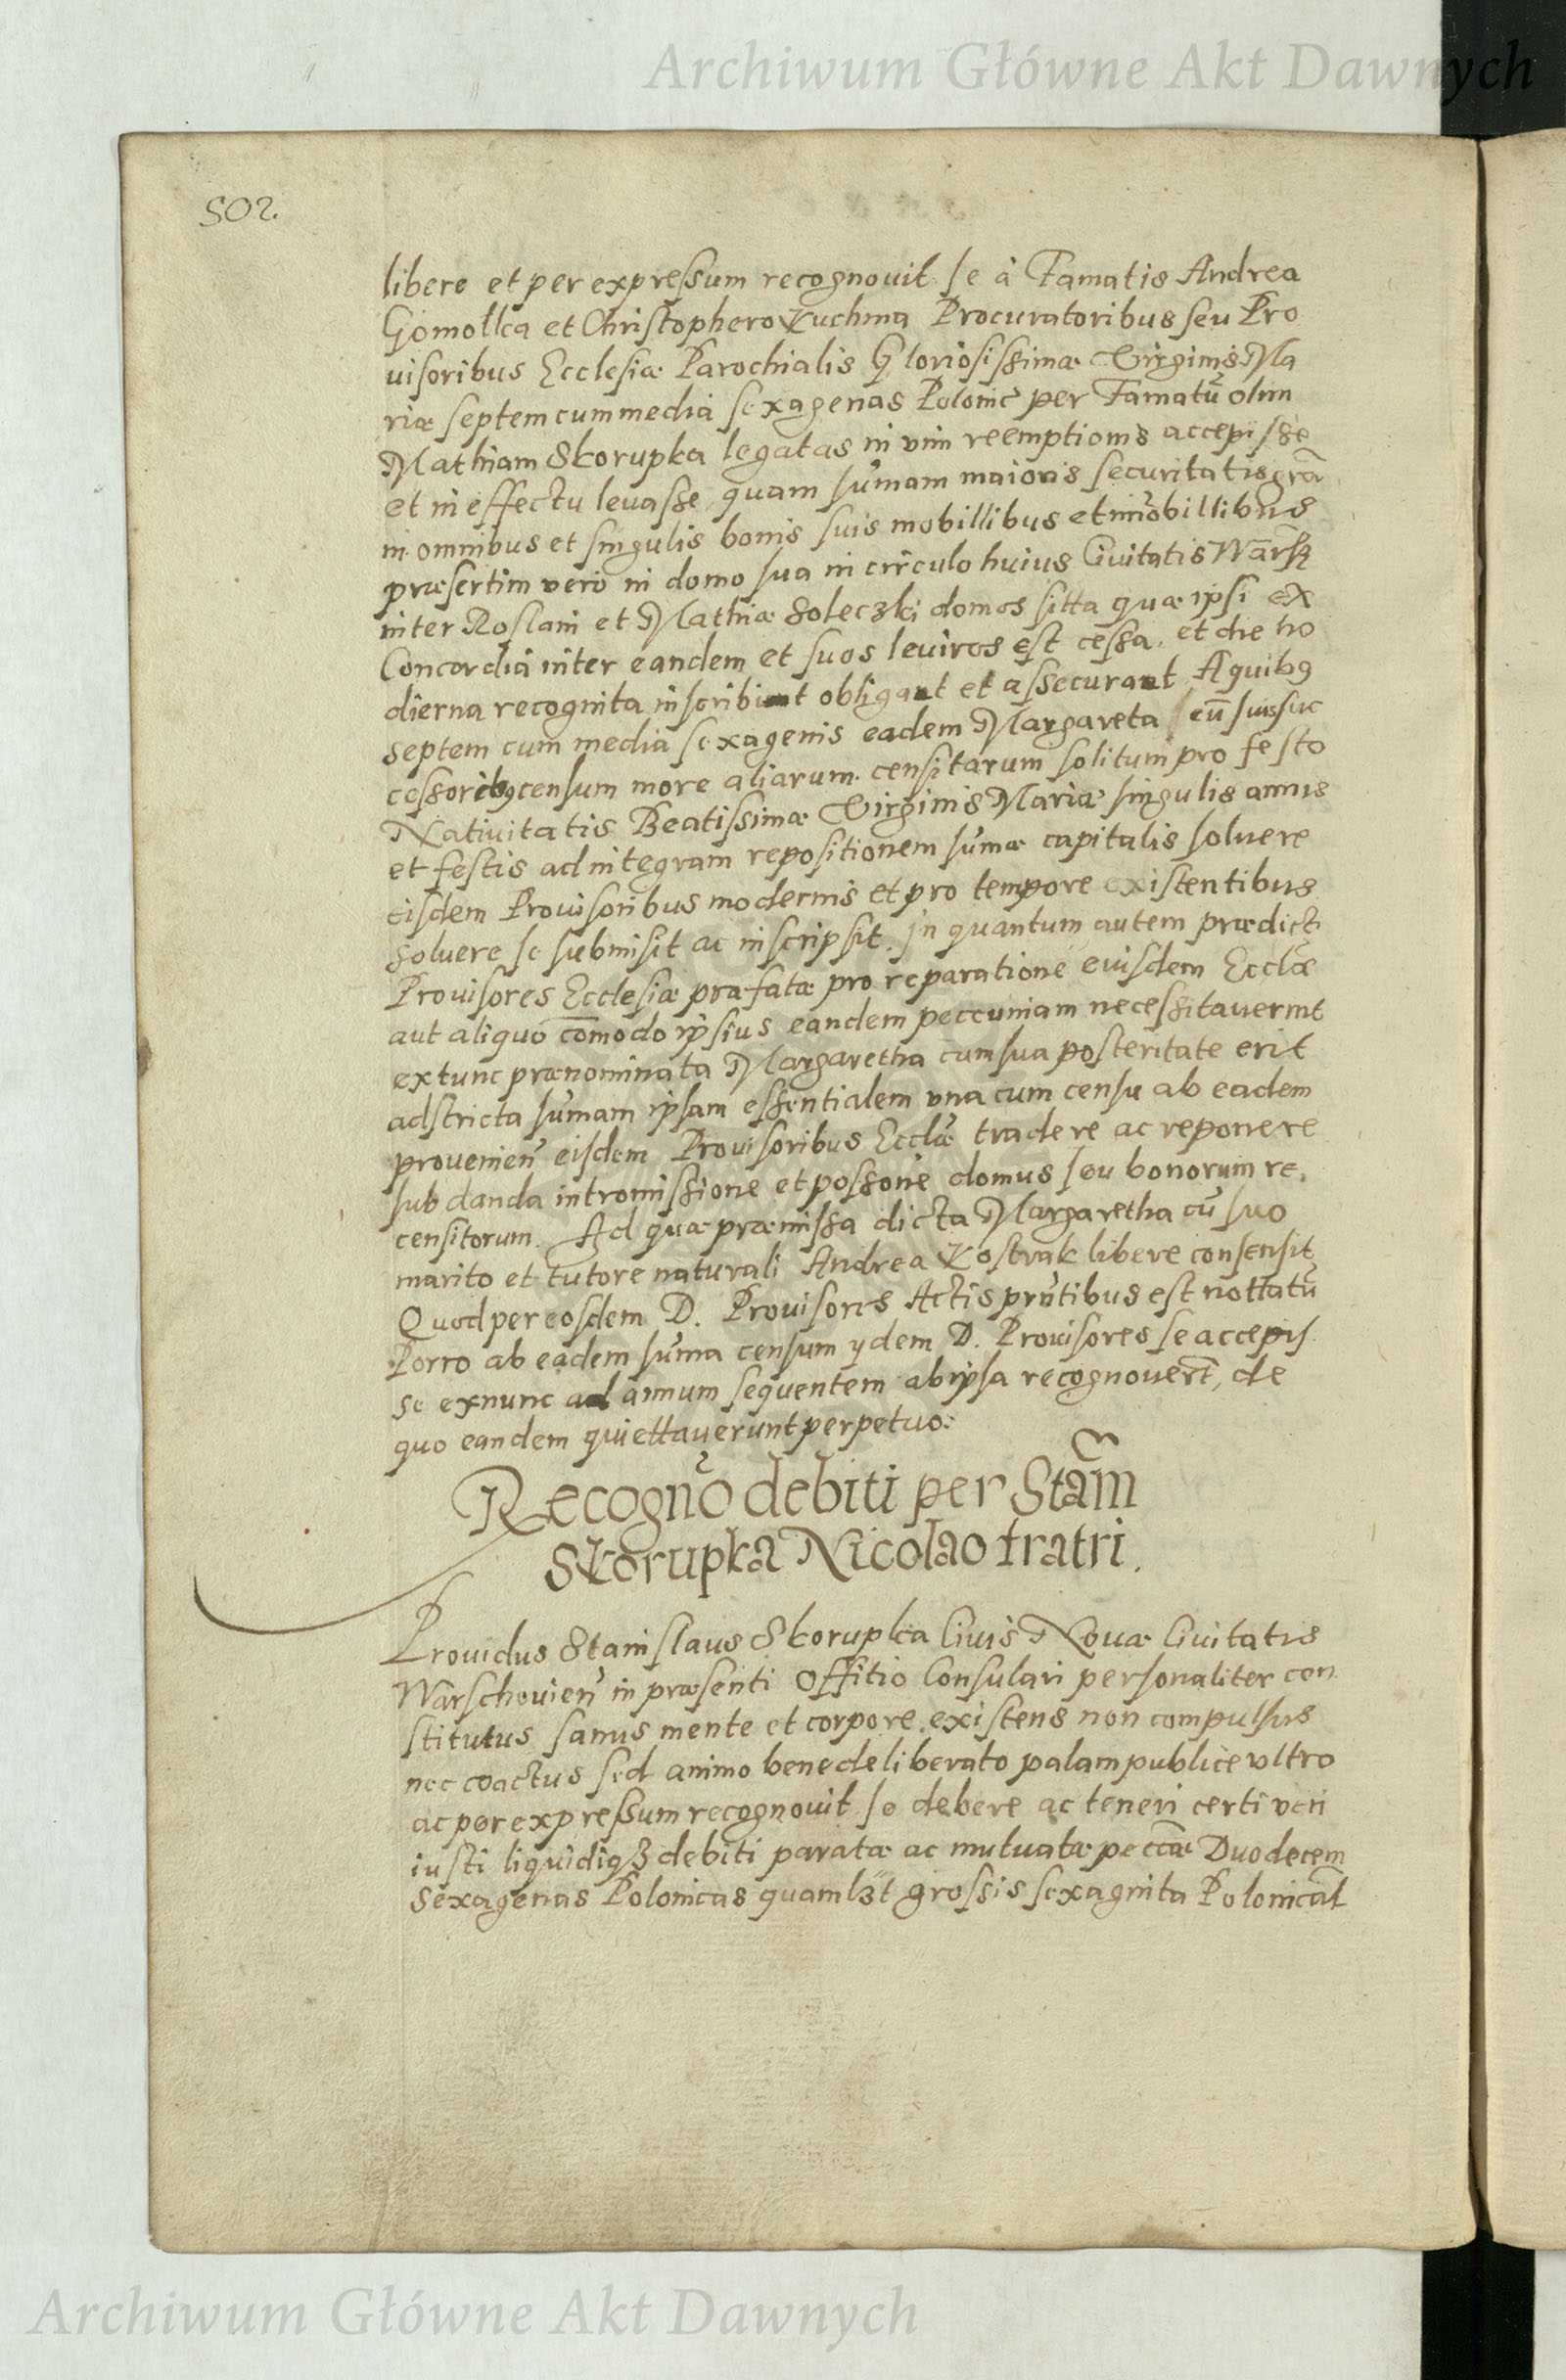 Archiwum Główne Akt Dawnych
502.
libere et per expressum recognovit se à Famatis Andrea
Gomolka et Christophero Kuchma Procuratoribus seu Pro
uisoribus Ecclesiæ Parochialis Gloriosissimæ Virginis Ma
riæ septem cum media sexagenas Polonic̃ per Famatũ olim
Mathiam Skorupka legatas in vim reemptionis accepisse
et in effectu leuasse, quam sum̃am maioris securitatis grã
in omnibus et singulis bonis suis mobillibus et im̃obillibus
præsertim vero in domo sua in circulo huius Ciuitatis Warsz
inter Roslani et Mathiæ Soleczki domos sitta quæ ipsi ex
Concordia inter eandem et suos leviros est cessa, et die ho
dierna recognita inscribunt obligant et assecurant A quibꝯ
septem cum media sexagenis eadem Margareta cũ suis suc
cessoribꝯ censum more aliarum censitarum solitum pro festo
Nativitatis Beatissimæ Virginis Mariæ singulis annis
et festis ad integram repositionem sum̃æ capitalis soluere
eisdem Prouisoribus modernis et pro tempore existentibus
soluere se submisit ac inscripsit. In quantum autem prædicti
Prouisores Ecclesiæ præfatæ pro reparatione euisdem Eccl̃æ
aut aliquo com̃odo ipsius eandem peccuniam necessitauerint
ex tunc prænominata Margaretha cum sua posteritate erit
adstricta sum̃am ipsam essentialem vna cum censu ab eadem
prouenieñ eisdem Prouisoribus Eccl̃æ tradere ac reponere
sub danda intromissione et possone domus seu bonorum re,
censitorum. Ad quæ præmissa dicta Margaretha cũ suo
marito et tutore naturali Andrea Kostrak libere consensit
Quod per eosdem D. Prouisores Actis prñtibus est nottatũ
Porro ab eadem sum̃a censum ydem D. Prouisores se accepis
se exnunc ad annum sequentem ab ipsa recognouert̃, de
quo eandem quiettauerunt perpetuo:
Recogño debiti per Stãm
Skorupka Nicolao fratri.
Prouidus Stanislaus Skorupka Ciuis Nouæ Ciuitatis
Warschouieñ in præsenti Offitio Consulari personaliter con
stitutus sanus mente et corpore existens non compulsus
nec coactus sed animo bene deliberato palam publice vltro
ac per expressum recognouit se debere ac teneri certi veri
iusti liquidiqꝫ debiti paratæ ac mutuatæ peccãe Duodecem
Sexagenas Polonicas quamlꝫt grossis sexaginta Polonicãl
Archiwum Główne Akt Dawnych